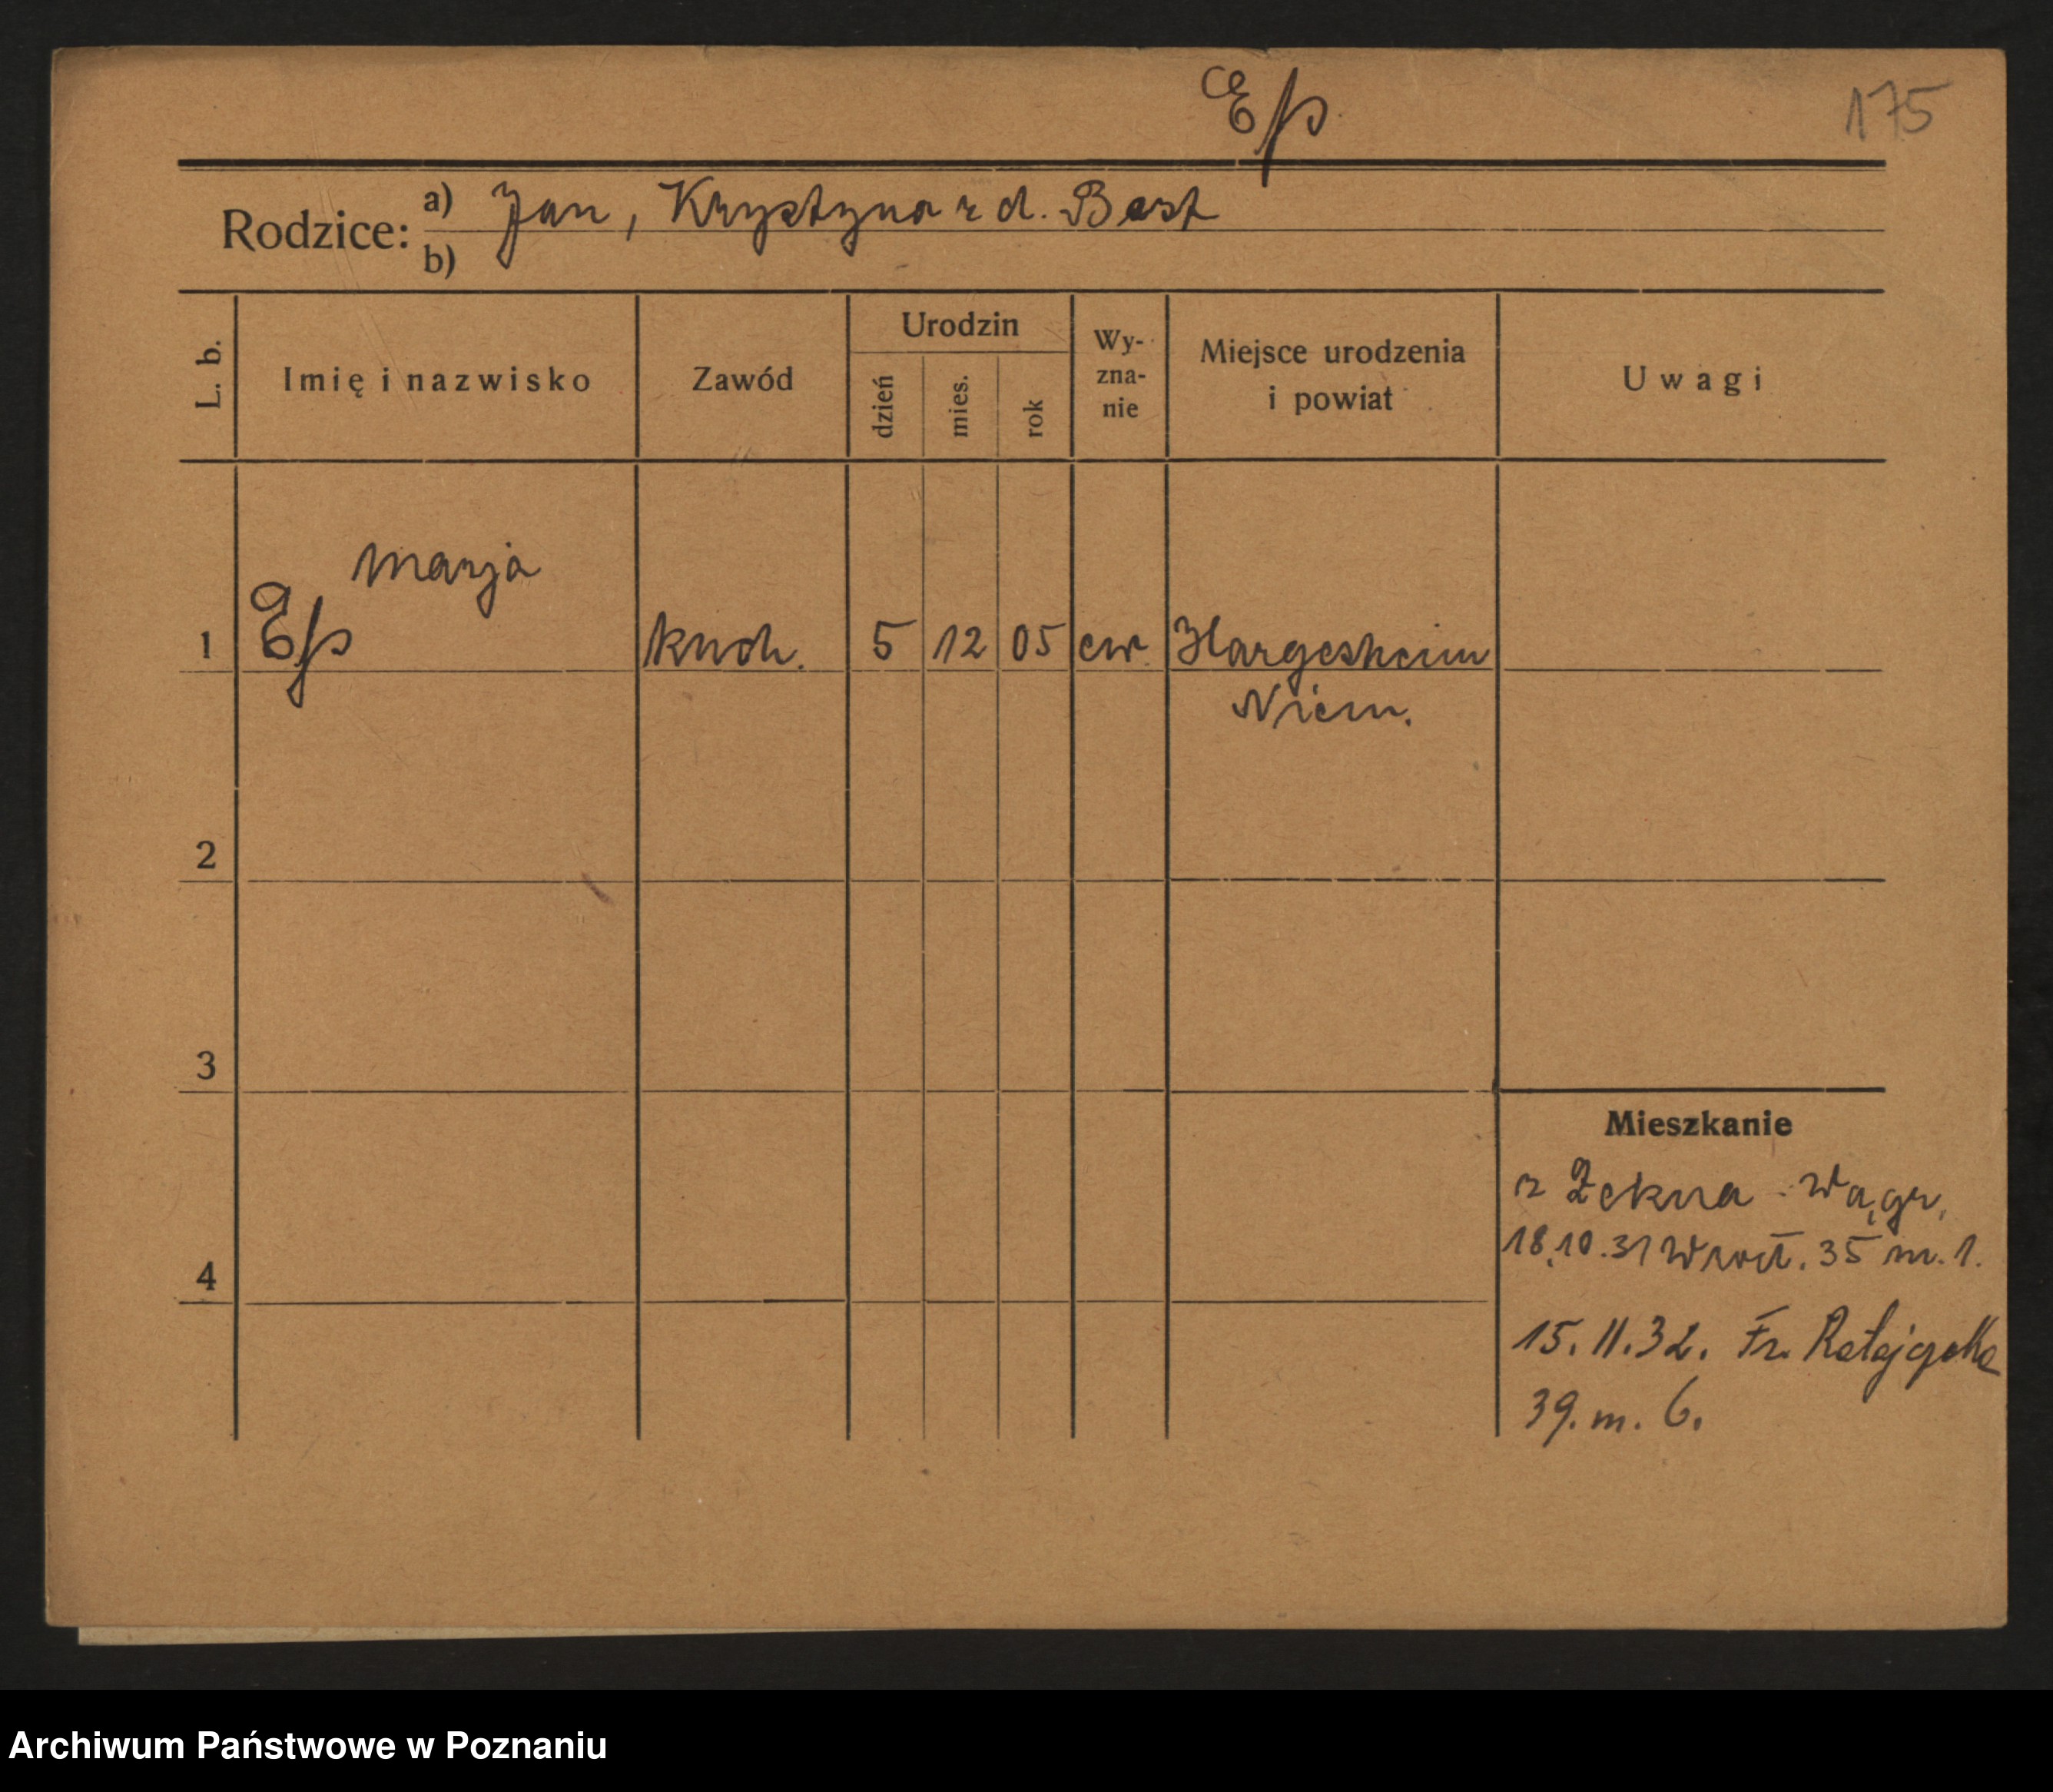 Eß
175
Rodzice: a) Jan, Krystyna z d. Bast
b)
L. b.
Imię i nazwisko
Zawód
Urodzin
dzień
mies.
rok
Wy-
zna-
nie
Miejsce urodzenia
i powiat
Uwagi
Marja
1 Eß kuch. 5 12 05 ew. Hargesheim
Niem.
2
3
Mieszkanie
z Żekna Wągr.
18.10.31 Wrocł. 35 m. 1.
4
15.11.32. Fr. Ratajczaka
39. m. 6.
Archiwum Państwowe w Poznaniu